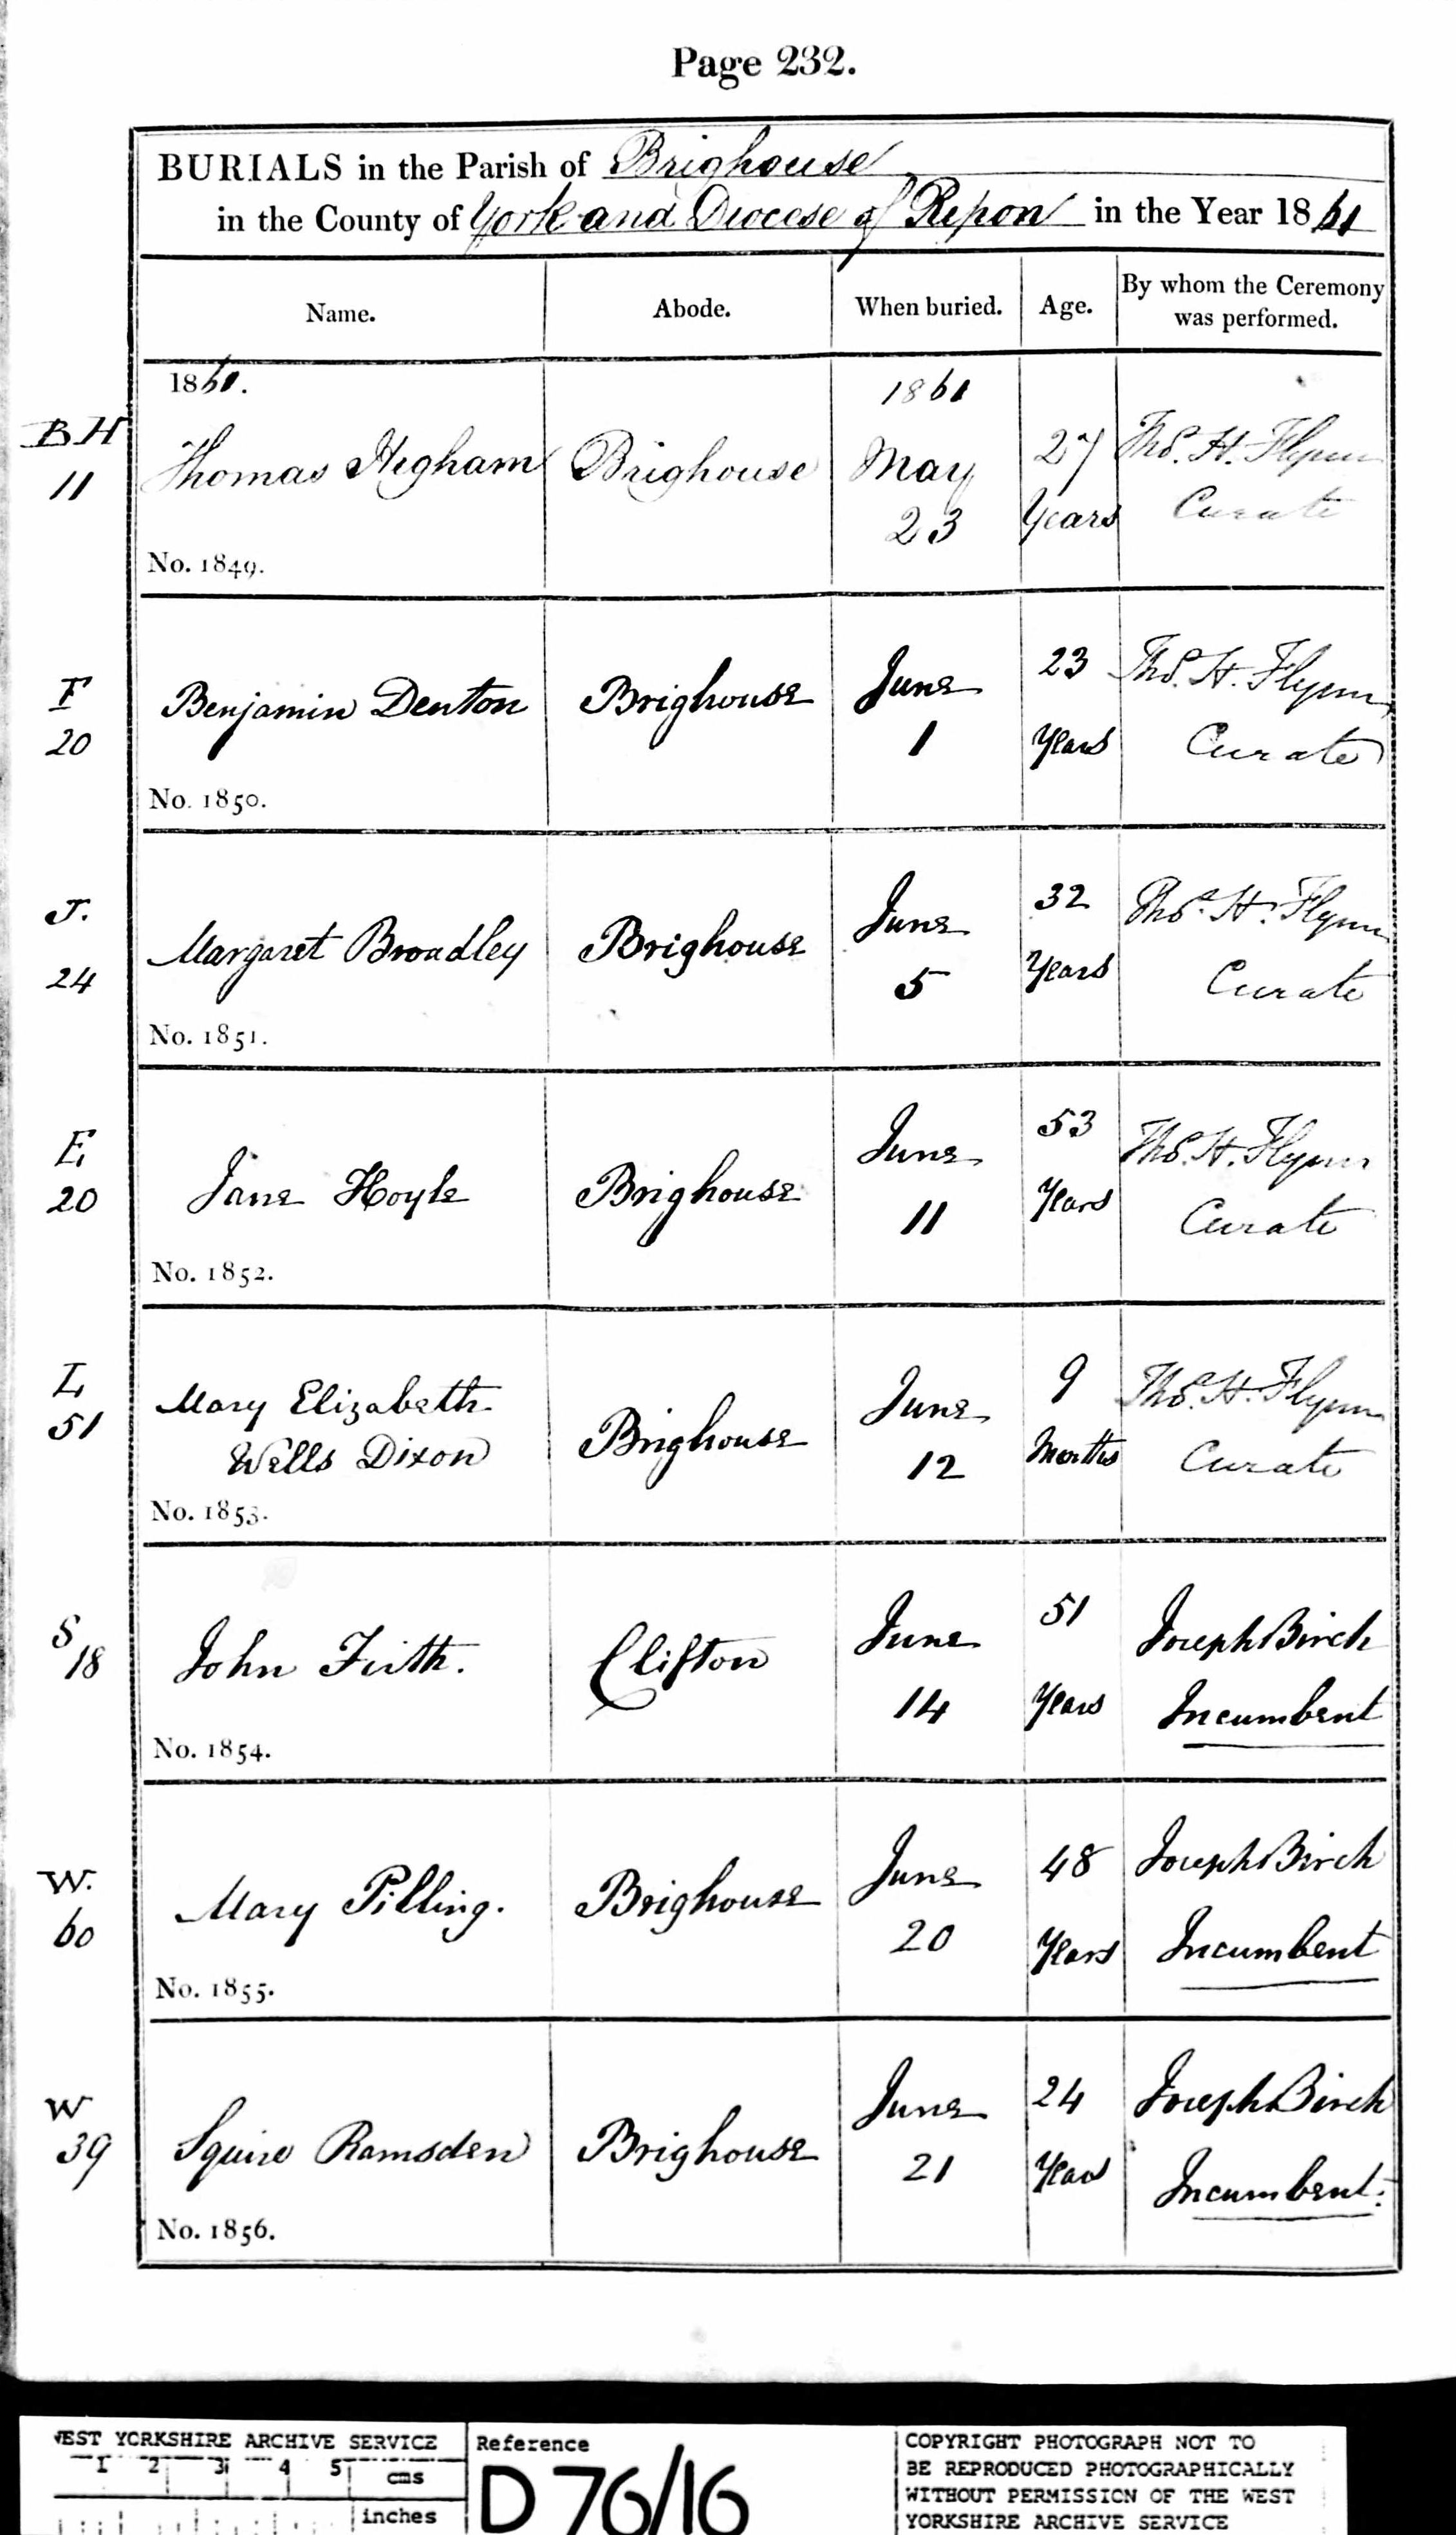 Page 232.
BURIALS in the Parish of Brighouse
in the County of York and Diocese of Ripon in the Year 1861
Name. Abode. When buried. Age. By whom the Ceremony was performed.
1861. 1861
BH 11 Thomas Higham Brighouse May 23 27 Years Thos. H. Flynn Curate
No. 1849.
F 20 Benjamin Denton Brighouse June 1 23 Years Thos. H. Flynn Curate
No. 1850.
J. 24 Margaret Broadley Brighouse June 5 32 Years Thos. H. Flynn Curate
No. 1851.
E 20 Jane Hoyle Brighouse June 11 53 Years Thos. H. Flynn Curate
No. 1852.
L 51 Mary Elizabeth Wells Dixon Brighouse June 12 9 Months Thos. H. Flynn Curate
No. 1853.
S 18 John Firth. Clifton June 14 51 Years Joseph Birch Incumbent
No. 1854.
W. 60 Mary Pilling. Brighouse June 20 48 Years Joseph Birch Incumbent
No. 1855.
W 39 Squire Ramsden Brighouse June 21 24 Years Joseph Birch Incumbent.
No. 1856.
WEST YORKSHIRE ARCHIVE SERVICE
1 2 3 4 5 cms
inches
Reference
D76/16
COPYRIGHT PHOTOGRAPH NOT TO
BE REPRODUCED PHOTOGRAPHICALLY
WITHOUT PERMISSION OF THE WEST
YORKSHIRE ARCHIVE SERVICE